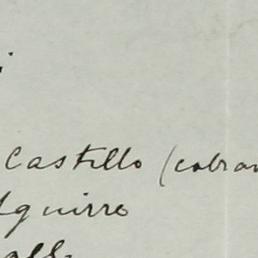 Castillo (cobran
Aguirre